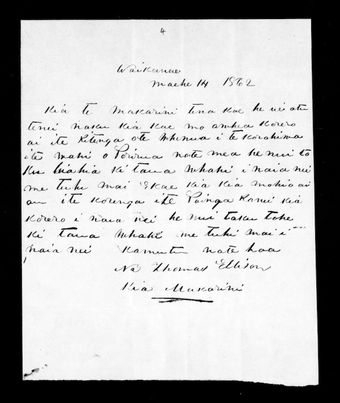 4
Waikanae
Maehe 14 1862
Kia te Makarini tena koe he ui atu
tenei naku kia koe mo awhea korero
ai ite Ritenga ote whenua i te
ote mahi o Porirua note mea he nui to
hiahia ki taua whahi i naia nei
me tuhi mai Ekoe kia kia mohio ai
au ite korenga ite Painga Ranei kia
korero i naia nei he nui taku tohe
ki taua whahi me tuhi mai i
naia nei Kamutu nate hoa
Na Thomas Ellison
Kia Makarini